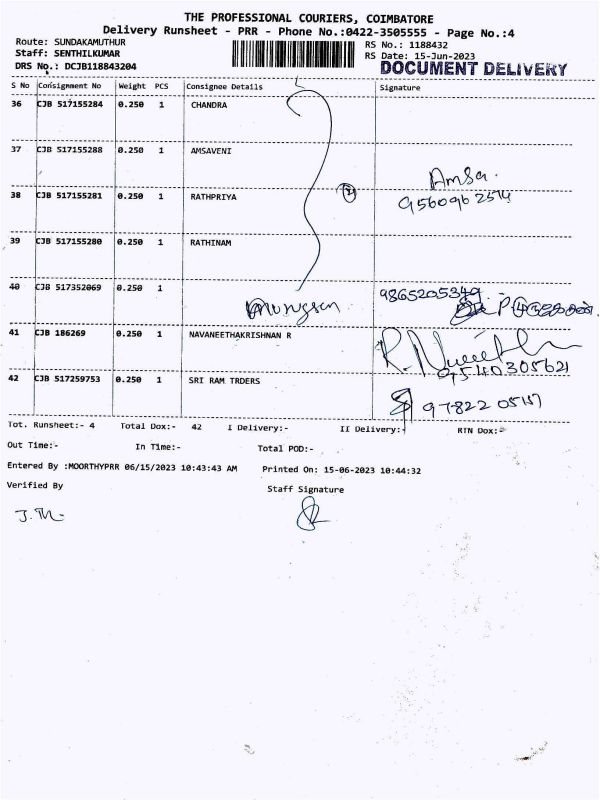 THE PROFESSIONAL COURIERS, COIMBATORE
Delivery Runsheet - PRR - Phone No.:0422-3505555 - Page No.:4
Route: SUNDAKAMUTHUR RS No.: 1188432
Staff: SENTHILKUMAR RS Date: 15-Jun-2023
DRS No.: DCJB118843204 DOCUMENT DELIVERY
S No Consignment No Weight PCS Consignee Details Signature
36 CJB 517155284 0.250 1 CHANDRA
37 CJB 517155288 0.250 1 AMSAVENI
Amsa.
38 CJB 517155281 0.250 1 RATHPRIYA 9560962514
39 CJB 517155280 0.250 1 RATHINAM
40 CJB 517352069 0.250 1 9865205349
Murugan P முருகேசன்.
41 CJB 186269 0.250 1 NAVANEETHAKRISHNAN R
9540305621
42 CJB 517259753 0.250 1 SRI RAM TRDERS
97822 05157
Tot. Runsheet:- 4 Total Dox:- 42 I Delivery:- II Delivery:- RTN Dox:-
Out Time:- In Time:- Total POD:-
Entered By :MOORTHYPRR 06/15/2023 10:43:43 AM Printed On: 15-06-2023 10:44:32
Verified By Staff Signature